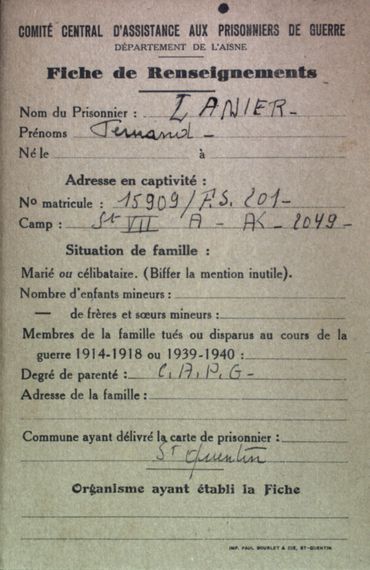 COMITÉ CENTRAL D'ASSISTANCE AUX PRISONNIERS DE GUERRE
DÉPARTEMENT DE L'AISNE
Fiche de Renseignements
Nom du Prisonnier : LANIER-
Prénoms Fernand-
Né le à
Adresse en captivité :
No matricule : 15909/F.S. 201-
Camp : St VII A - AK - 2049-
Situation de famille :
Marié ou célibataire. (Biffer la mention inutile).
Nombre d'enfants mineurs :
— de frères et sœurs mineurs :
Membres de la famille tués ou disparus au cours de la
guerre 1914-1918 ou 1939-1940 :
Degré de parenté : C.A.P.G-
Adresse de la famille :
Commune ayant délivré la carte de prisonnier :
St Quentin
Organisme ayant établi la Fiche
IMP. PAUL BOURLET & CIE, ST-QUENTIN.